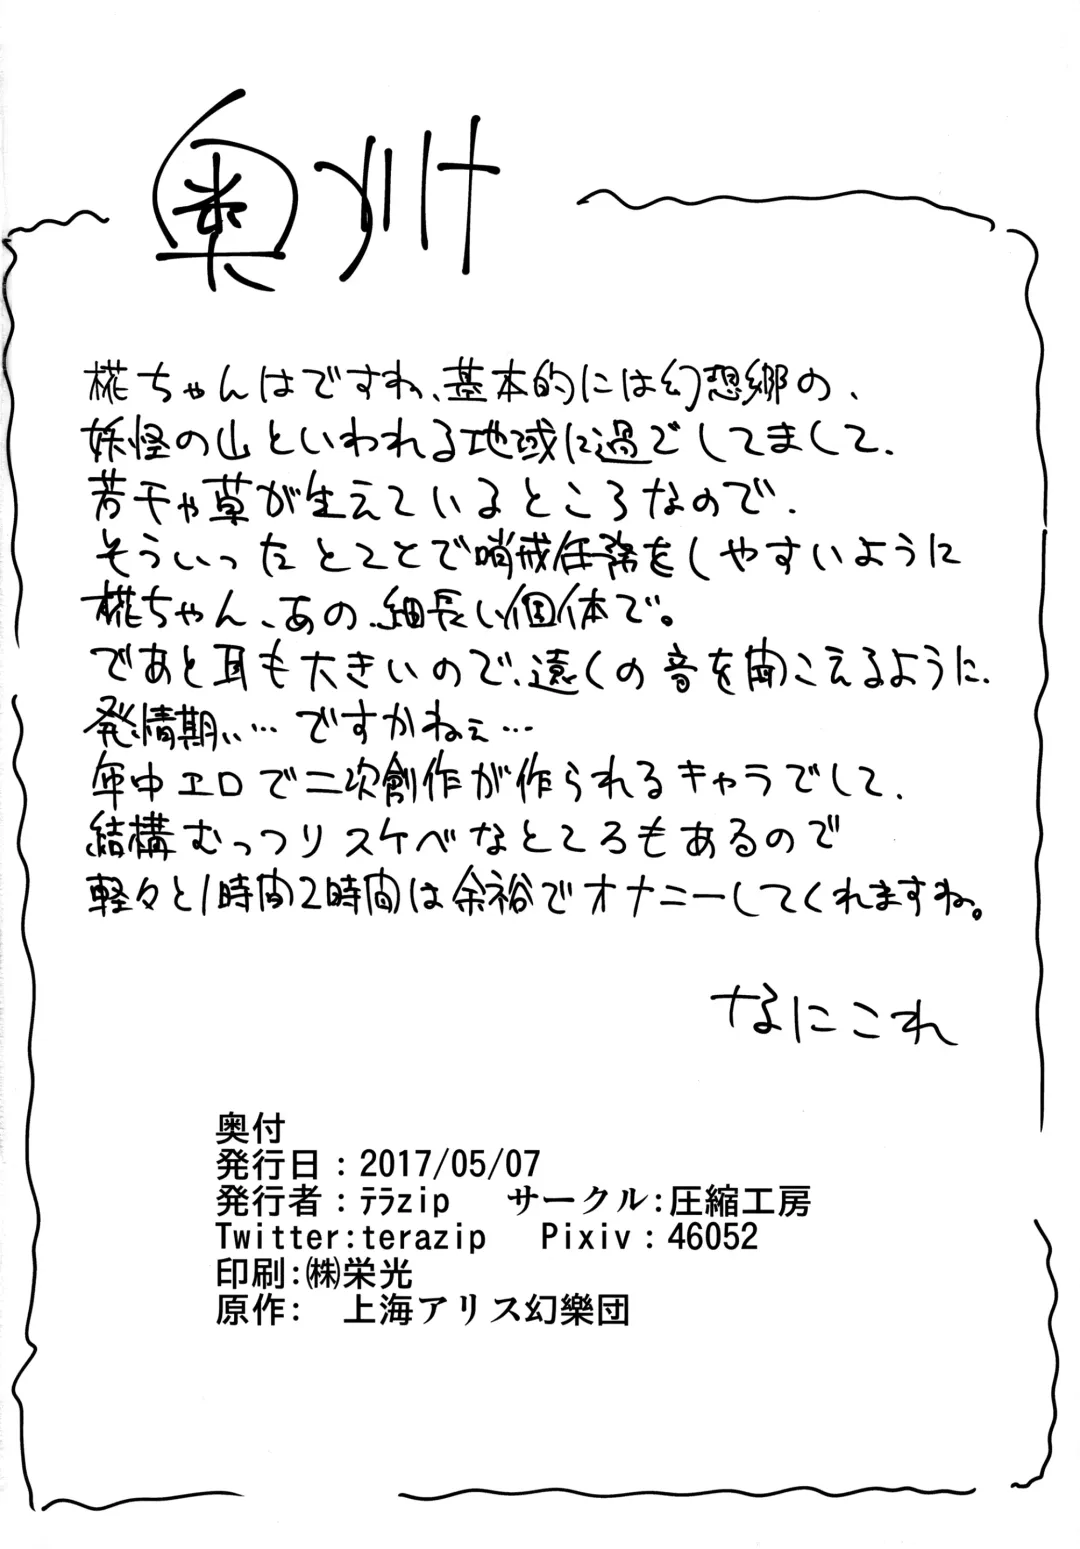 奥付
椛ちゃんはですね、基本的には幻想郷の、
妖怪の山といわれる地域に過ごしてまして、
若干や草が生えているところなので、
そういったとことで哨戒任務をしやすいように
椛ちゃん、あの、細長い個体で。
であと耳も大きいので、遠くの音を聞こえるように、
発情期ぃ…ですかねぇ…
年中エロで二次創作が作られるキャラでして、
結構むっつりスケベなところもあるので
軽々と1時間2時間は余裕でオナニーしてくれますね。
なにこれ
奥付
発行日：2017/05/07
発行者：ﾃﾗzip サークル：圧縮工房
Twitter:terazip Pixiv：46052
印刷：㈱栄光
原作： 上海アリス幻樂団